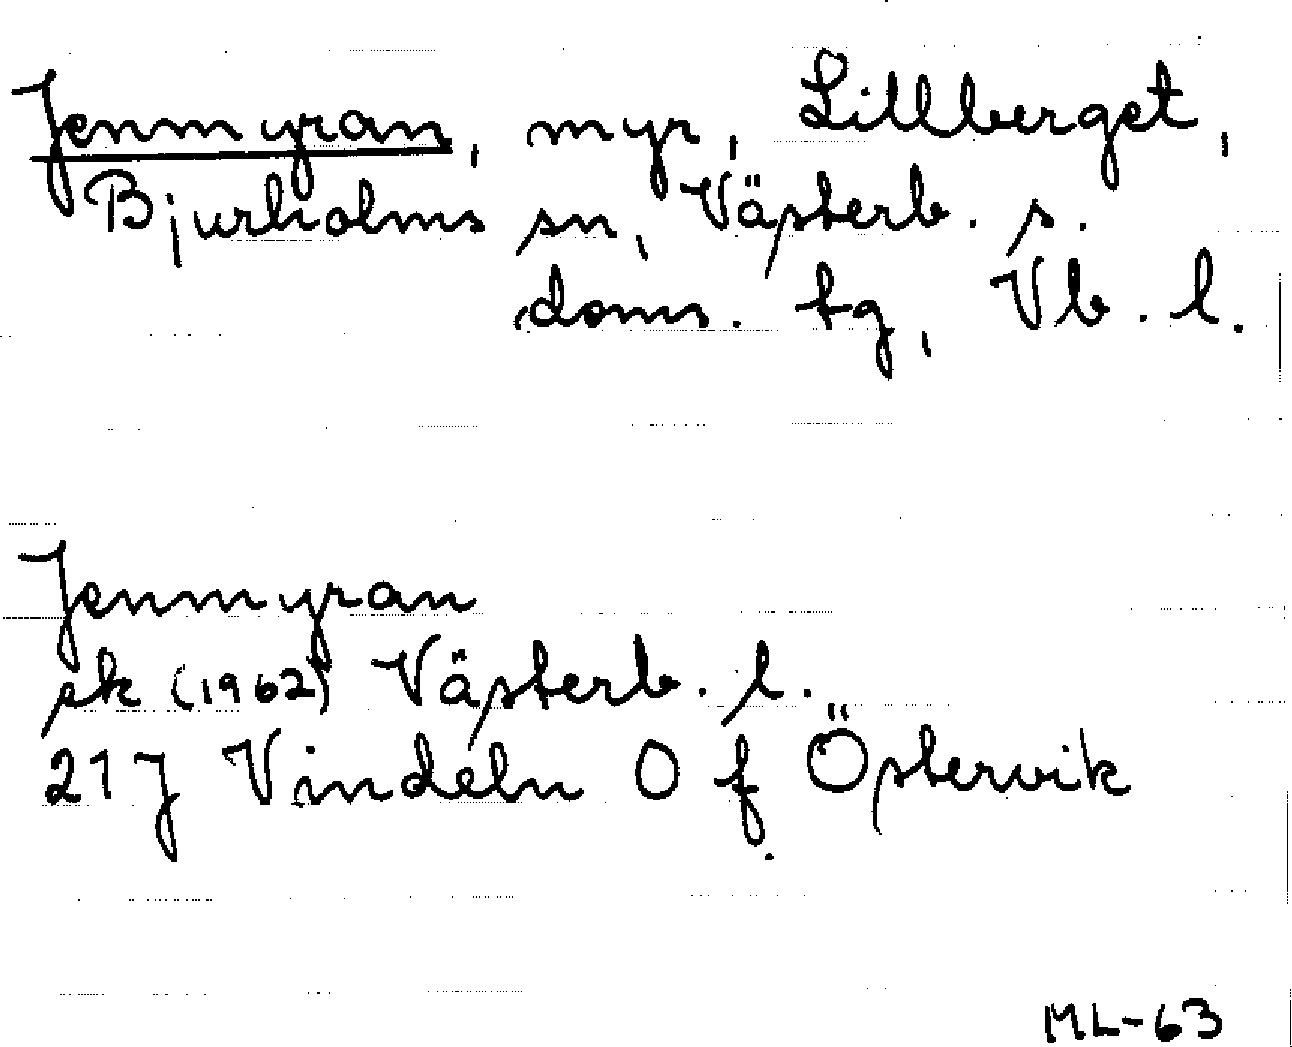 Jenmyran, myr, Lillberget,
Bjurholms sn, Västerb. s.
doms. tg, Vb. l.
Jenmyran
ek (1962) Västerb. l.
21J Vindeln O f Östervik
ML-63